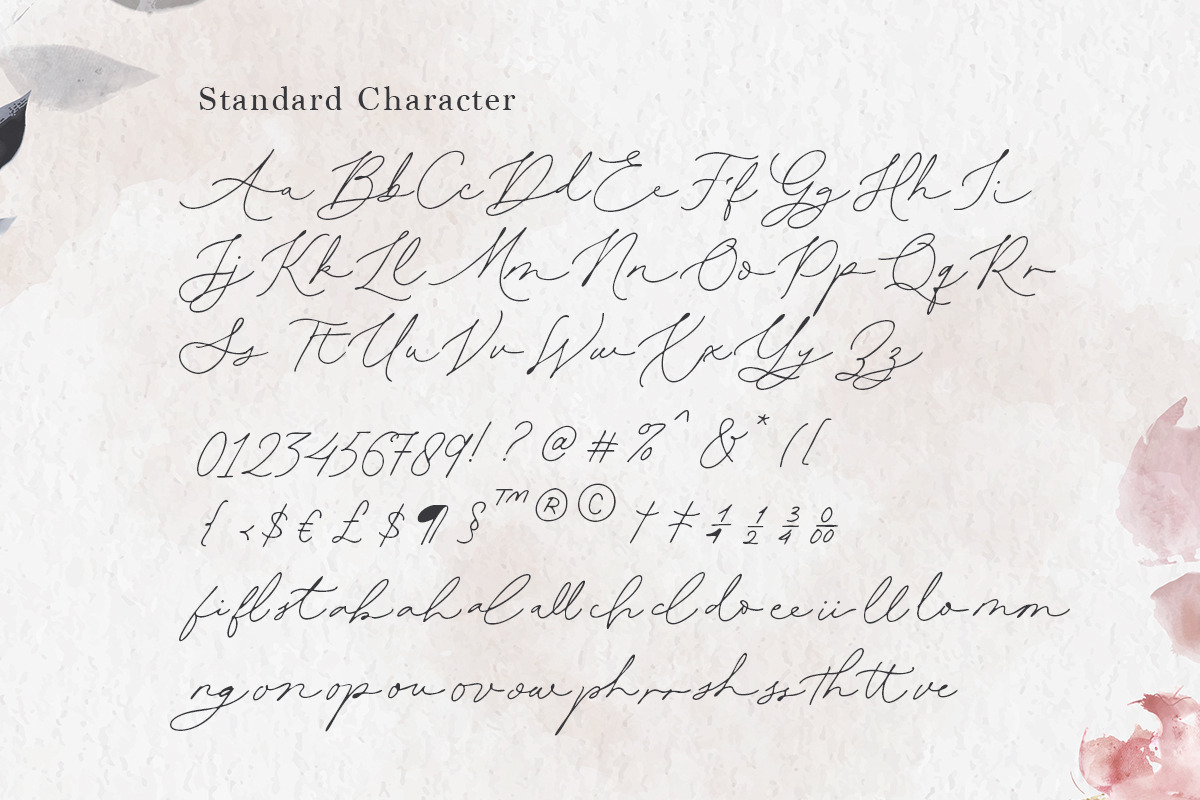 Standard Character
Aa Bb Cc Dd Ee Ff Gg Hh Ii
Jj Kk Ll Mm Nn Oo Pp Qq Rr
Ss Tt Uu Vv Ww Xx Yy Zz
0123456789! ? @ # % ^ & * ( [
{ < $ € £ $ ¶ § ™ ® © † ‡ 1/4 1/2 3/4 0/00
fi fl st ab ah al all ch cl do ee ii ll lo mm
ng on op ou ov ow ph rr sh ss th tt ve